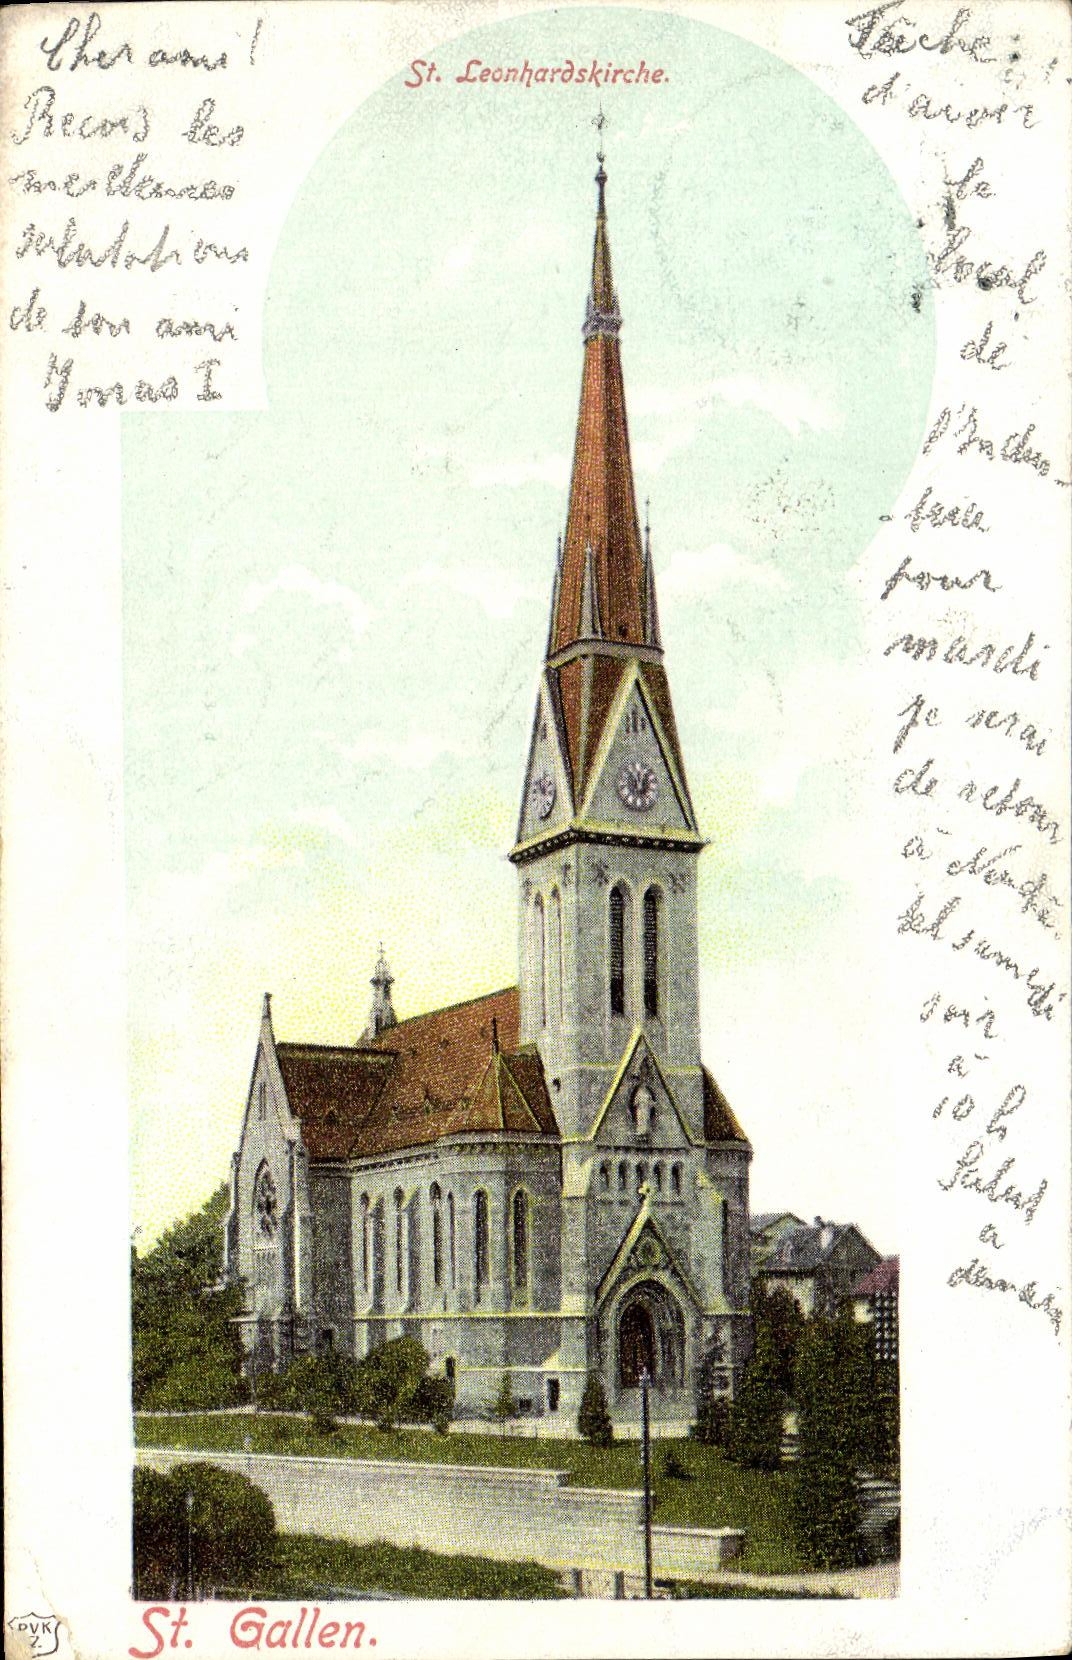 Cher ami!
Reçois les
meilleures
salutations
de ton ami
St. Leonhardskirche.
Tâche
d'avoir
le
local
de
l'Indus-
trie
pour
mardi
je serai
de retour
à Neuchâ-
tel samedi
soir
à
10 h
Salut
a
demain
St. Gallen.
DVK
Z.